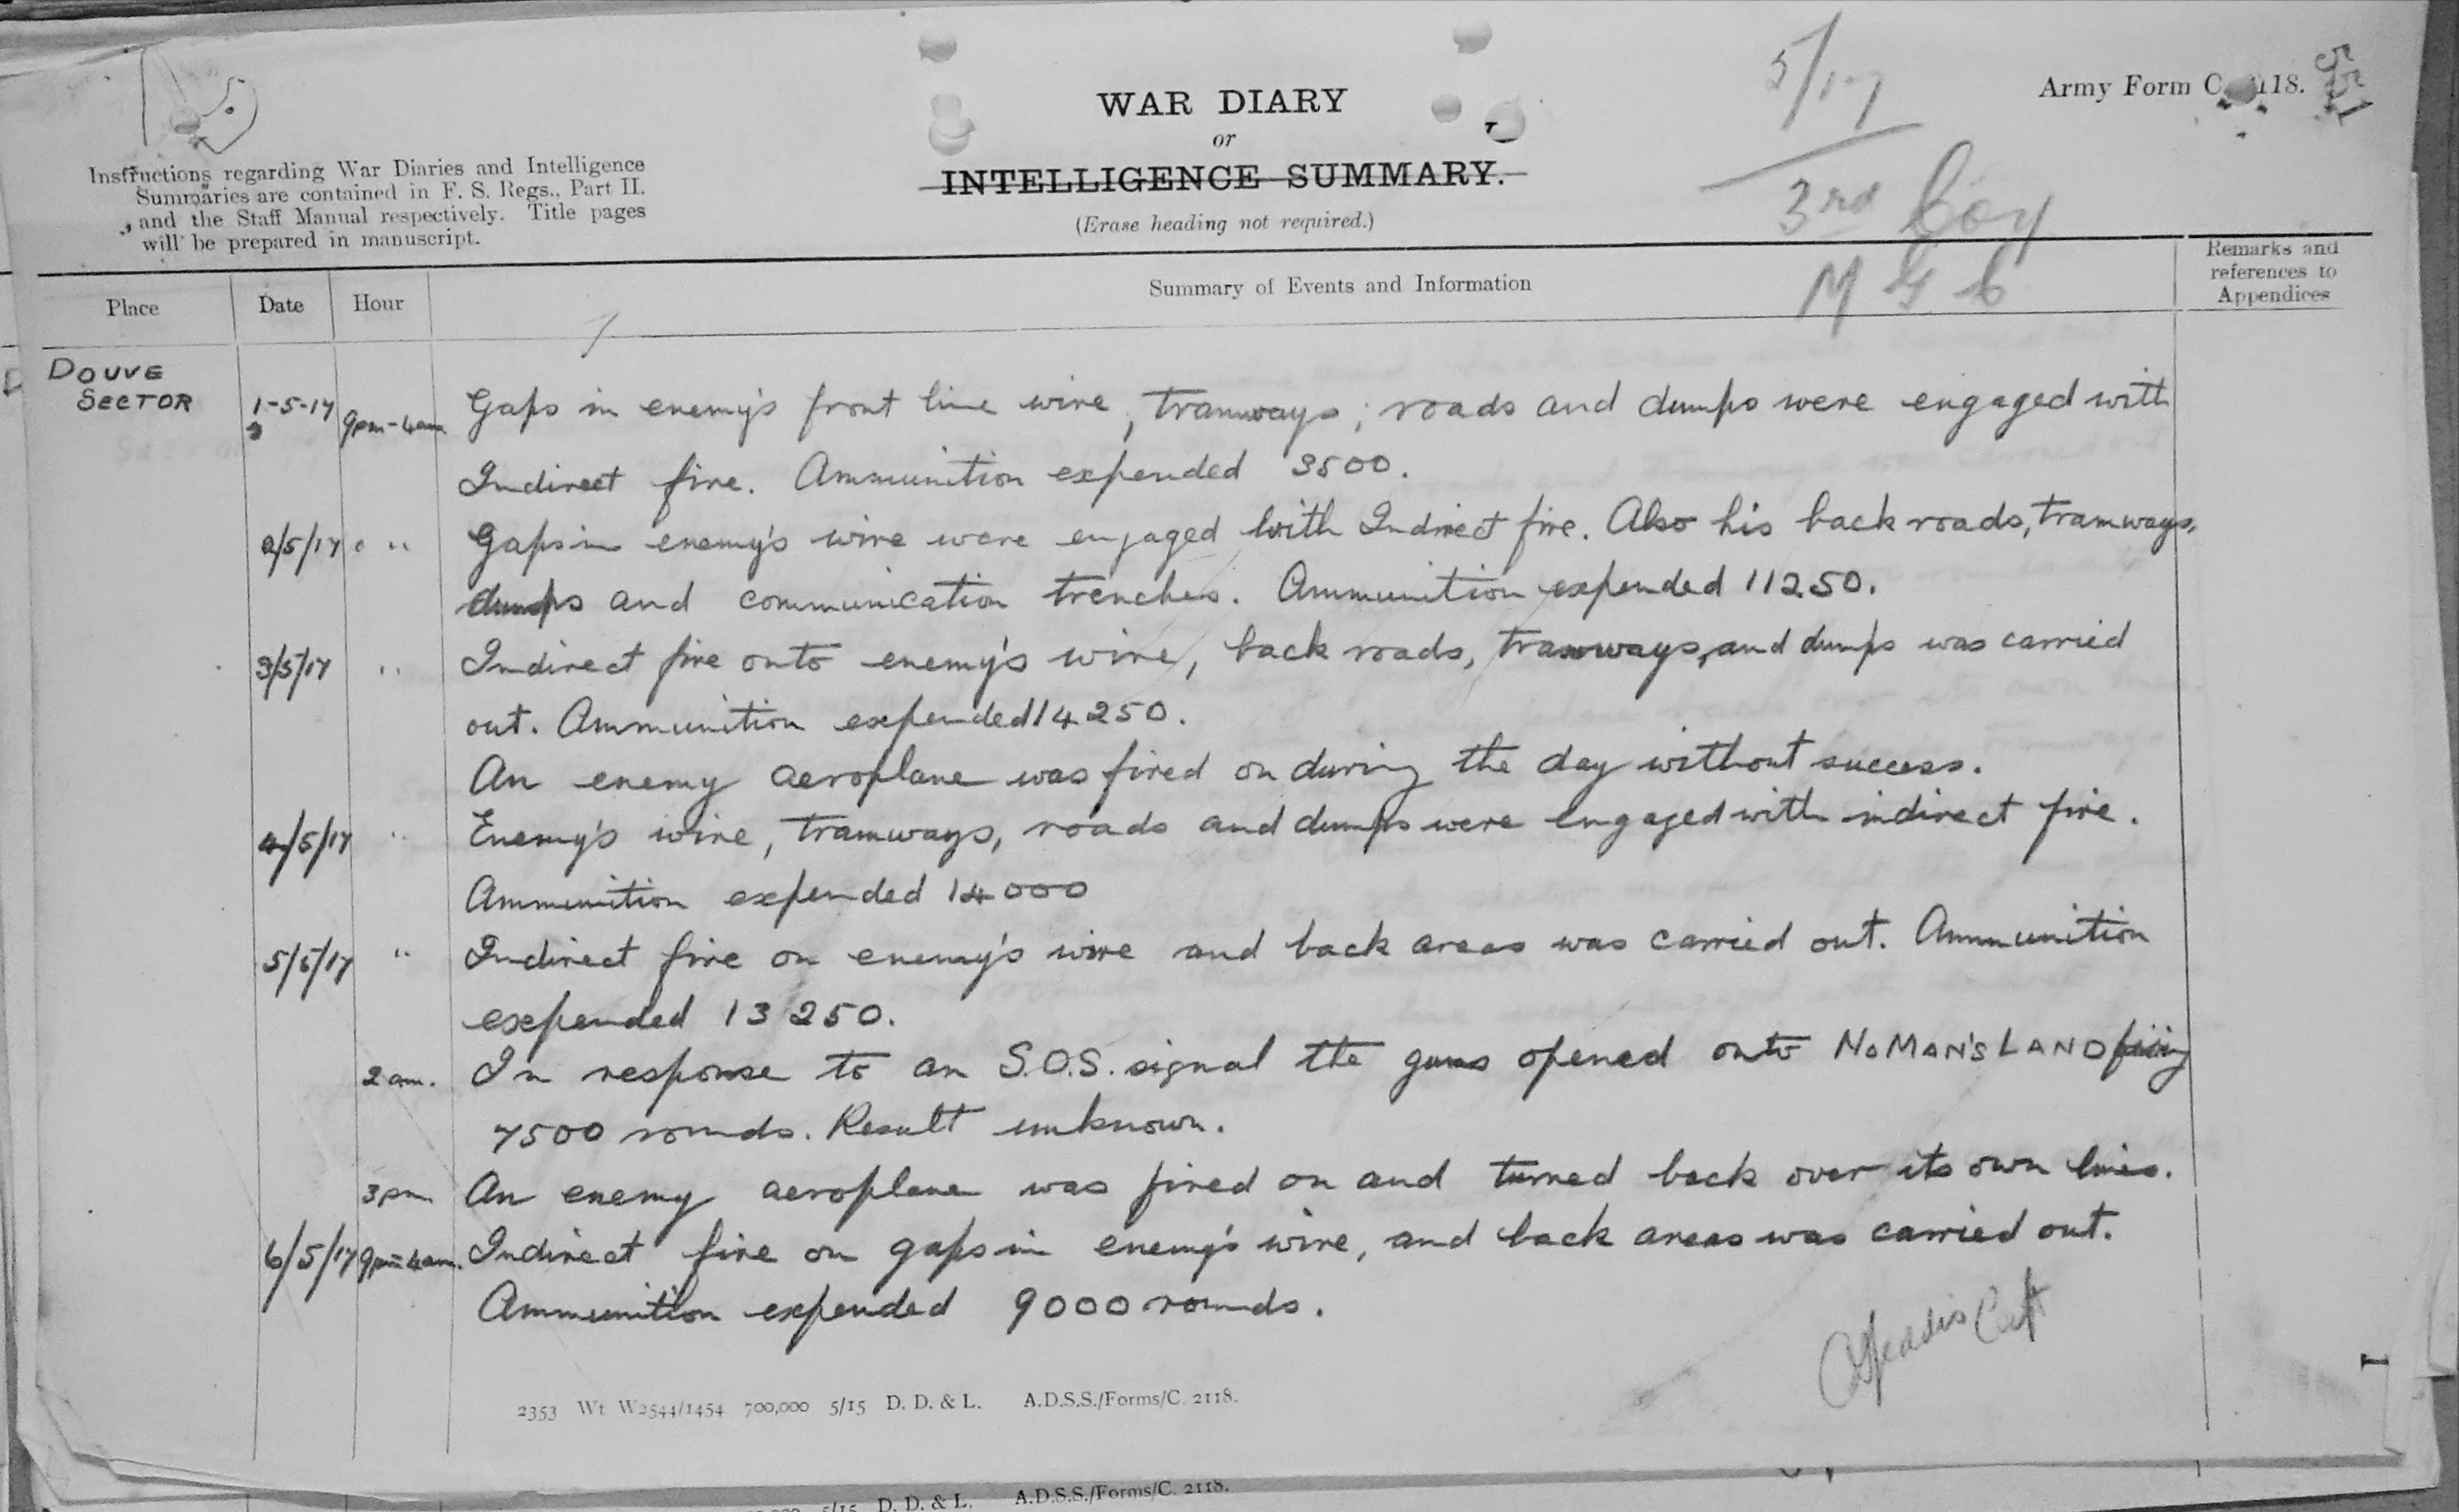 5/17
Army Form C. 2118.
551
WAR DIARY
or
INTELLIGENCE SUMMARY.
(Erase heading not required.)
Instructions regarding War Diaries and Intelligence
Summaries are contained in F. S. Regs., Part II.
and the Staff Manual respectively. Title pages
will be prepared in manuscript.
3rd Coy
M G C
Place Date Hour Summary of Events and Information
Remarks and
references to
Appendices
DOUVE
SECTOR
1-5-17 9pm-4am Gaps in enemy's front line wire, tramways, roads and dumps were engaged with
Indirect fire. Ammunition expended 3500.
2/5/17 " Gaps in enemy's wire were engaged with Indirect fire. Also his back roads, tramways,
dumps and communication trenches. Ammunition expended 11250.
3/5/17 " Indirect fire onto enemy's wire, back roads, tramways, and dumps was carried
out. Ammunition expended 14250.
An enemy aeroplane was fired on during the day without success.
4/5/17 " Enemy's wire, tramways, roads and dumps were engaged with indirect fire.
Ammunition expended 14000
5/5/17 " Indirect fire on enemy's wire and back areas was carried out. Ammunition
expended 13250.
2am. In response to an S.O.S. signal the guns opened onto NO MAN'S LAND firing
7500 rounds. Result unknown.
3pm An enemy aeroplane was fired on and turned back over its own lines.
6/5/17 9pm-4am. Indirect fire on gaps in enemy's wire, and back areas was carried out.
Ammunition expended 9000 rounds.
Capt
2353 Wt W2544/1454 700,000 5/15 D. D. & L. A.D.S.S./Forms/C. 2118.
5/15 D. D. & L. A.D.S.S./Forms/C. 2118.